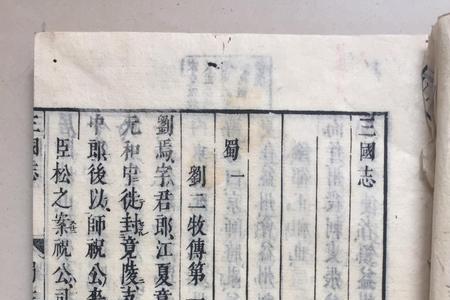 三國志
蜀一
劉二牧傳第一
劉焉字君郎江夏竟
元和中徙封竟陵支
中郎後以師祝公喪
臣松之案祝公司
三國志